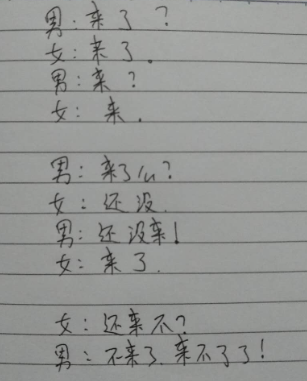 男:来了?
女:来了.
男:来?
女:来.
男:来了么?
女:还没.
男:还没来!
女:来了.
女:还来不?
男:不来了.来不了了!